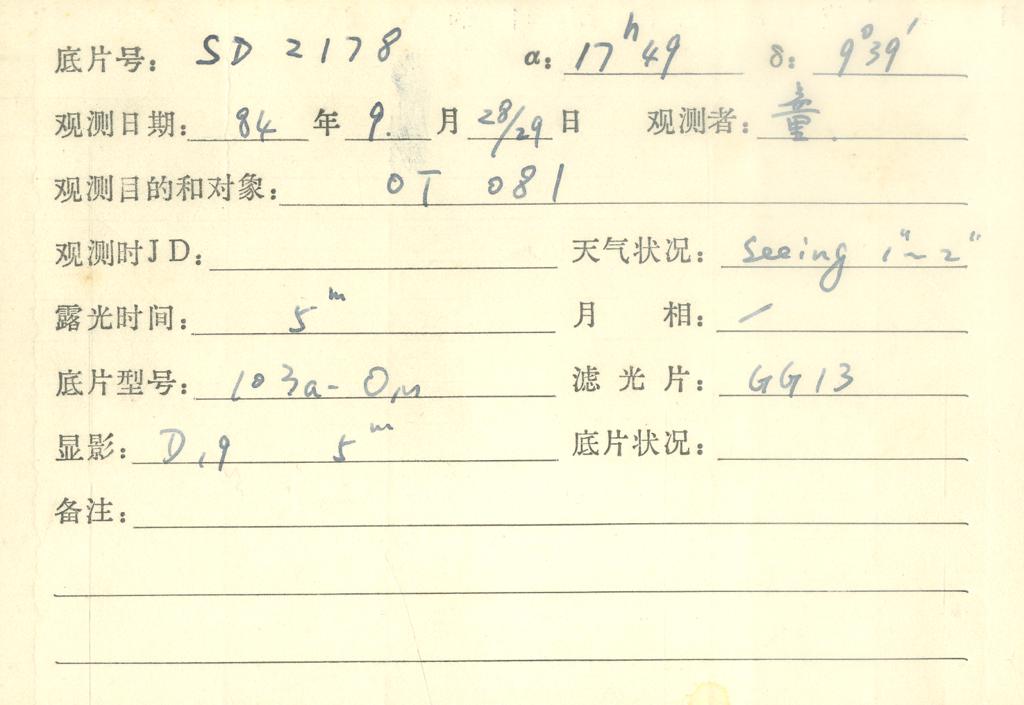 底片号: SD 2178 α: 17h 49 δ: 9°39′
观测日期: 84 年 9. 月 28/29 日 观测者: 童
观测目的和对象: OT 081
观测时JD: 天气状况: Seeing 1"~2"
露光时间: 5m 月 相: /
底片型号: 103a-O, 滤光片: GG13
显影: D19 5m 底片状况:
备注: